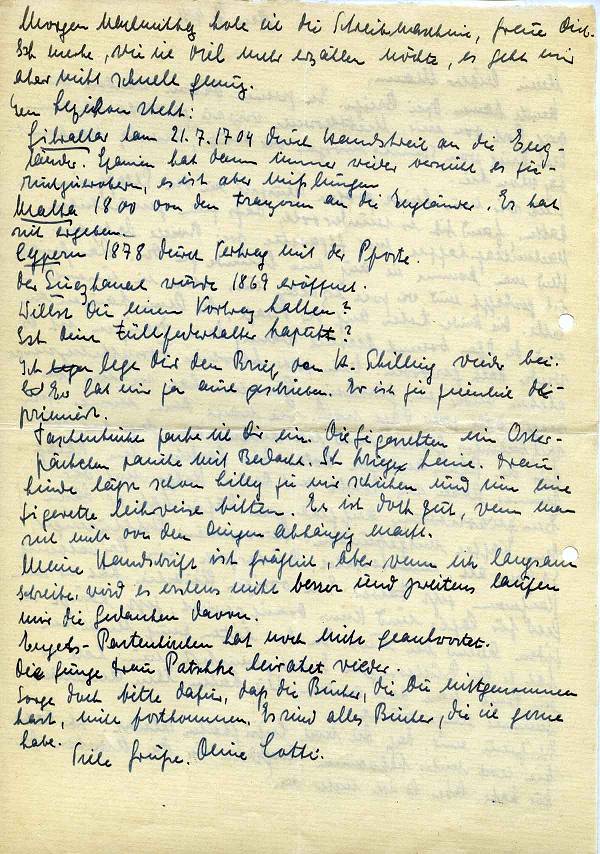 Morgen Nachmittag hole ich die Schreibmaschine, freue Dich.
Ich merke, wie ich viel mehr erzählen möchte, es geht mir
aber nicht schnell genug.
Im Lexikon steht:
Gibraltar kam 21.7.1704 durch Handstreich an die Eng-
länder. Spanien hat dann immer wieder versucht es zu-
rückzuerobern, es ist aber mißlungen.
Malta 1800 von den Franzosen an die Engländer. Es hat
sich ergeben.
Cypern 1878 durch Vertrag mit der Pforte.
Der Suezkanal wurde 1869 eröffnet.
Willst Du einen Vortrag halten?
Ist dein Füllfederhalter kaputt?
Ich lege Dir den Brief von K. Schilling wieder bei.
Er hat mir ja auch geschrieben. Er ist ja ziemlich de-
primiert.
Taschentücher packe ich Dir ein. Die Zigaretten im Oster-
päckchen rauche mit Bedacht. Ich kriege keine. Frau
Linde läßt schon Hilly zu mir schicken und um eine
Zigarette leihweise bitten. Es ist doch gut, wenn man
sich nicht von den Dingen abhängig macht.
Meine Handschrift ist gräßlich, aber wenn ich langsam
schreibe, wird es erstens nicht besser und zweitens laufen
mir die Gedanken davon.
-Partenkirchen hat noch nicht geantwortet.
Die junge Frau Patschke heiratet wieder.
Sorge doch bitte dafür, daß die Bücher, die Du mitgenommen
hast, nicht fortkommen. Es sind alles Bücher, die ich gerne
habe.
Viele Grüße. Deine Lotti.